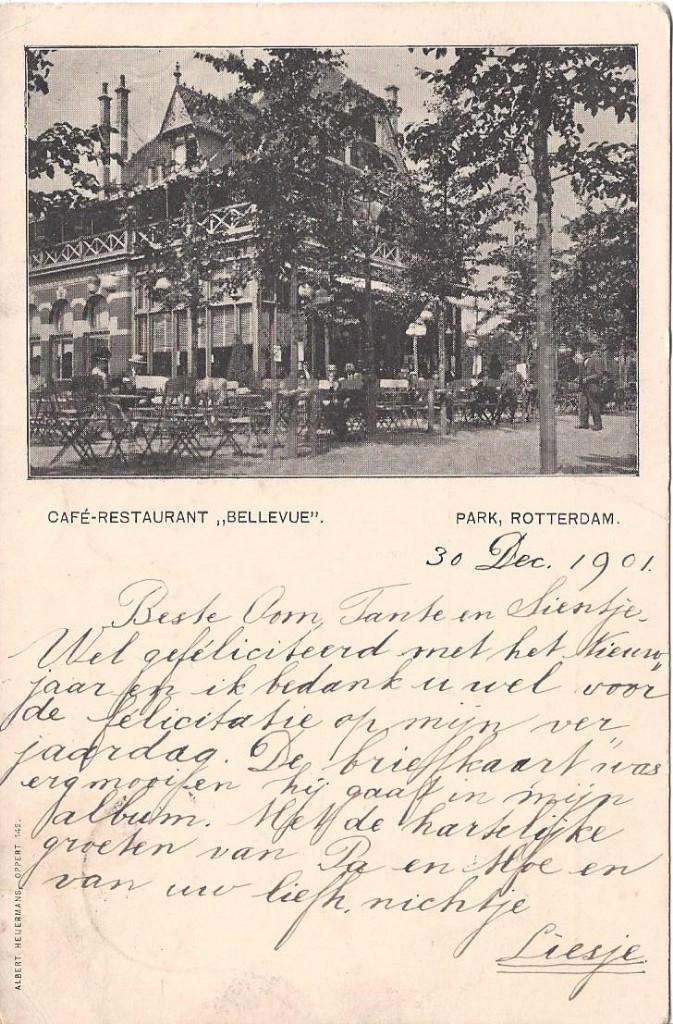 CAFÉ-RESTAURANT „BELLEVUE”. PARK, ROTTERDAM.
30 Dec. 1901.
Beste Oom, Tante en Sientje,
Wel geféliciteerd met het Nieuw,,
jaar en ik bedank u wel voor
de félicitatie op mijn ver
jaardag. De briefkaart was
erg mooi en hij gaat in mijn
album. Met de hartelijke
groeten van Pa en Moe en
van uw liefh. nichtje
Liesje.
ALBERT HEUERMANS, OPPERT 142.